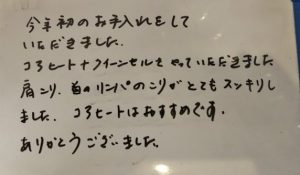 今年初のお手入れをして
いただきました。
コラヒート+クイーンセルをやっていただきました
肩こり、首のリンパのこりがとてもスッキリし
ました。コラヒートはおすすめです。
ありがとうございました。